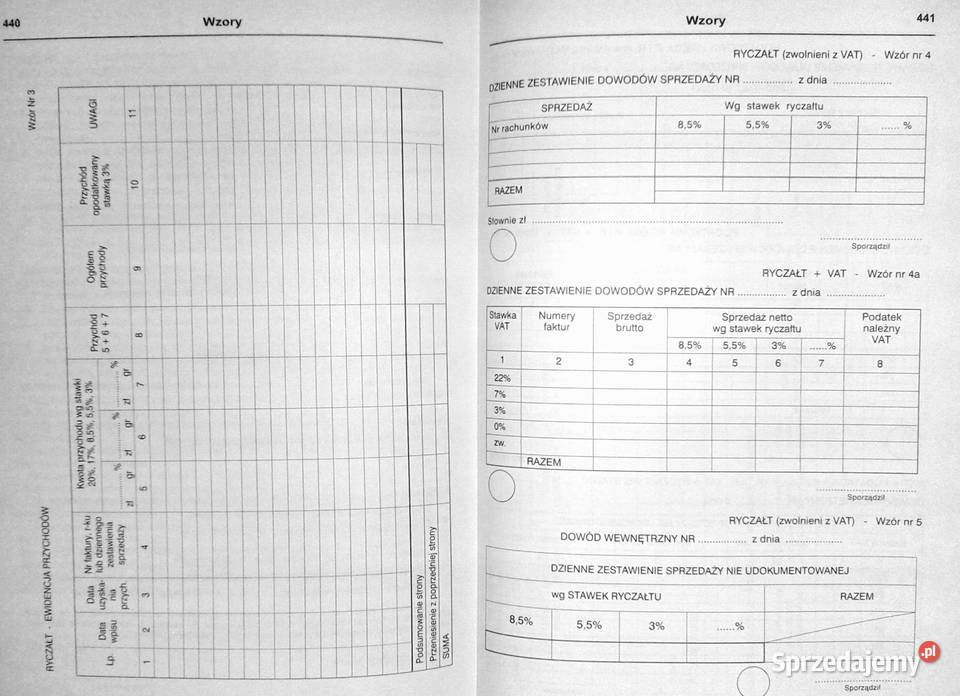 440
Wzory
Wzór Nr 3
RYCZAŁT - EWIDENCJA PRZYCHODÓW
Lp.
Data
wpisu
Data
uzyska-
nia
przych.
Nr faktury, r-ku
lub dziennego
zestawienia
sprzedaży
Kwota przychodu wg stawki
20%, 17%, 8,5%, 5,5%, 3%
............%
............%
............%
zł gr
zł gr
zł gr
Przychód
5 + 6 + 7
Ogółem
przychody
Przychód
opodatkowany
stawką 3%
UWAGI
1 2 3 4 5 6 7 8 9 10 11
Podsumowanie strony
Przeniesienie z poprzedniej strony
SUMA
Wzory
441
RYCZAŁT (zwolnieni z VAT) - Wzór nr 4
DZIENNE ZESTAWIENIE DOWODÓW SPRZEDAŻY NR ................ z dnia ...................
SPRZEDAŻ Wg stawek ryczałtu
Nr rachunków 8,5% 5,5% 3% ...... %
RAZEM
Słownie zł ................................................................................
Sporządził
RYCZAŁT + VAT - Wzór nr 4a
DZIENNE ZESTAWIENIE DOWODÓW SPRZEDAŻY NR ................ z dnia ...................
Stawka
VAT
Numery
faktur
Sprzedaż
brutto
Sprzedaż netto
wg stawek ryczałtu
8,5% 5,5% 3% ......%
Podatek
należny
VAT
1 2 3 4 5 6 7 8
22%
7%
3%
0%
zw.
RAZEM
Sporządził
RYCZAŁT (zwolnieni z VAT) - Wzór nr 5
DOWÓD WEWNĘTRZNY NR ................ z dnia ..................
DZIENNE ZESTAWIENIE SPRZEDAŻY NIE UDOKUMENTOWANEJ
wg STAWEK RYCZAŁTU RAZEM
8,5% 5,5% 3% ......%
Sporządził
Sprzedajemy.pl